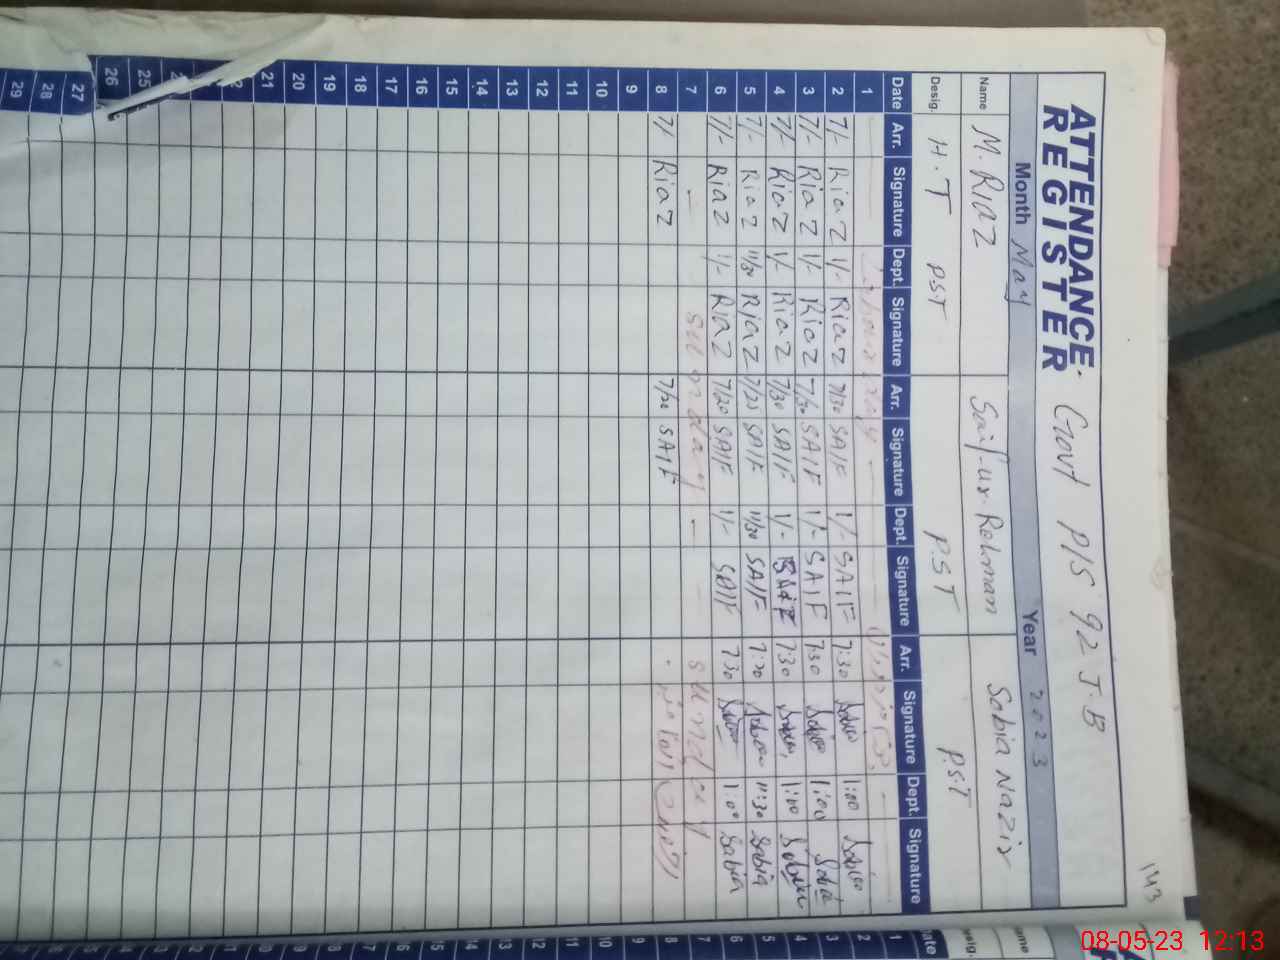 ATTENDANCE Govt P/S 92 J.B
REGISTER
Month May Year 2023
Name M. Riaz Saif-ur-Rehman Sabia Nazir
Desig. H.T PST P.S.T P.S.T
Date Arr. Signature Dept. Signature Arr. Signature Dept. Signature Arr. Signature Dept. Signature
1
2 7/- Riaz 1/- Riaz 7/30 SAIF 1/- SAIF 7:30 1:00
3 7/- Riaz 1/- Riaz 7/30 SAIF 1/- SAIF 7:30 1:00
4 7/- Riaz 1/- Riaz 7/30 SAIF 1/- 7:30 1:00
5 7/- Riaz 11/30 Riaz 7/25 SAIF 11/30 SAIF 7:20 11:30 Sabia
6 7/- Riaz 1/- Riaz 7/20 SAIF 1/- SAIF 7:30 1:00 Sabia
7 — Sunday — Sunday
8 7/- Riaz 7/20 SAIF
9
10
11
12
13
14
15
16
17
18
19
20
21
25
26
27
28
29
143
1
2
3
4
5
6
7
8
9
10
11
12
13
14
15
16
17
18
19
20
21
08-05-23 12:13